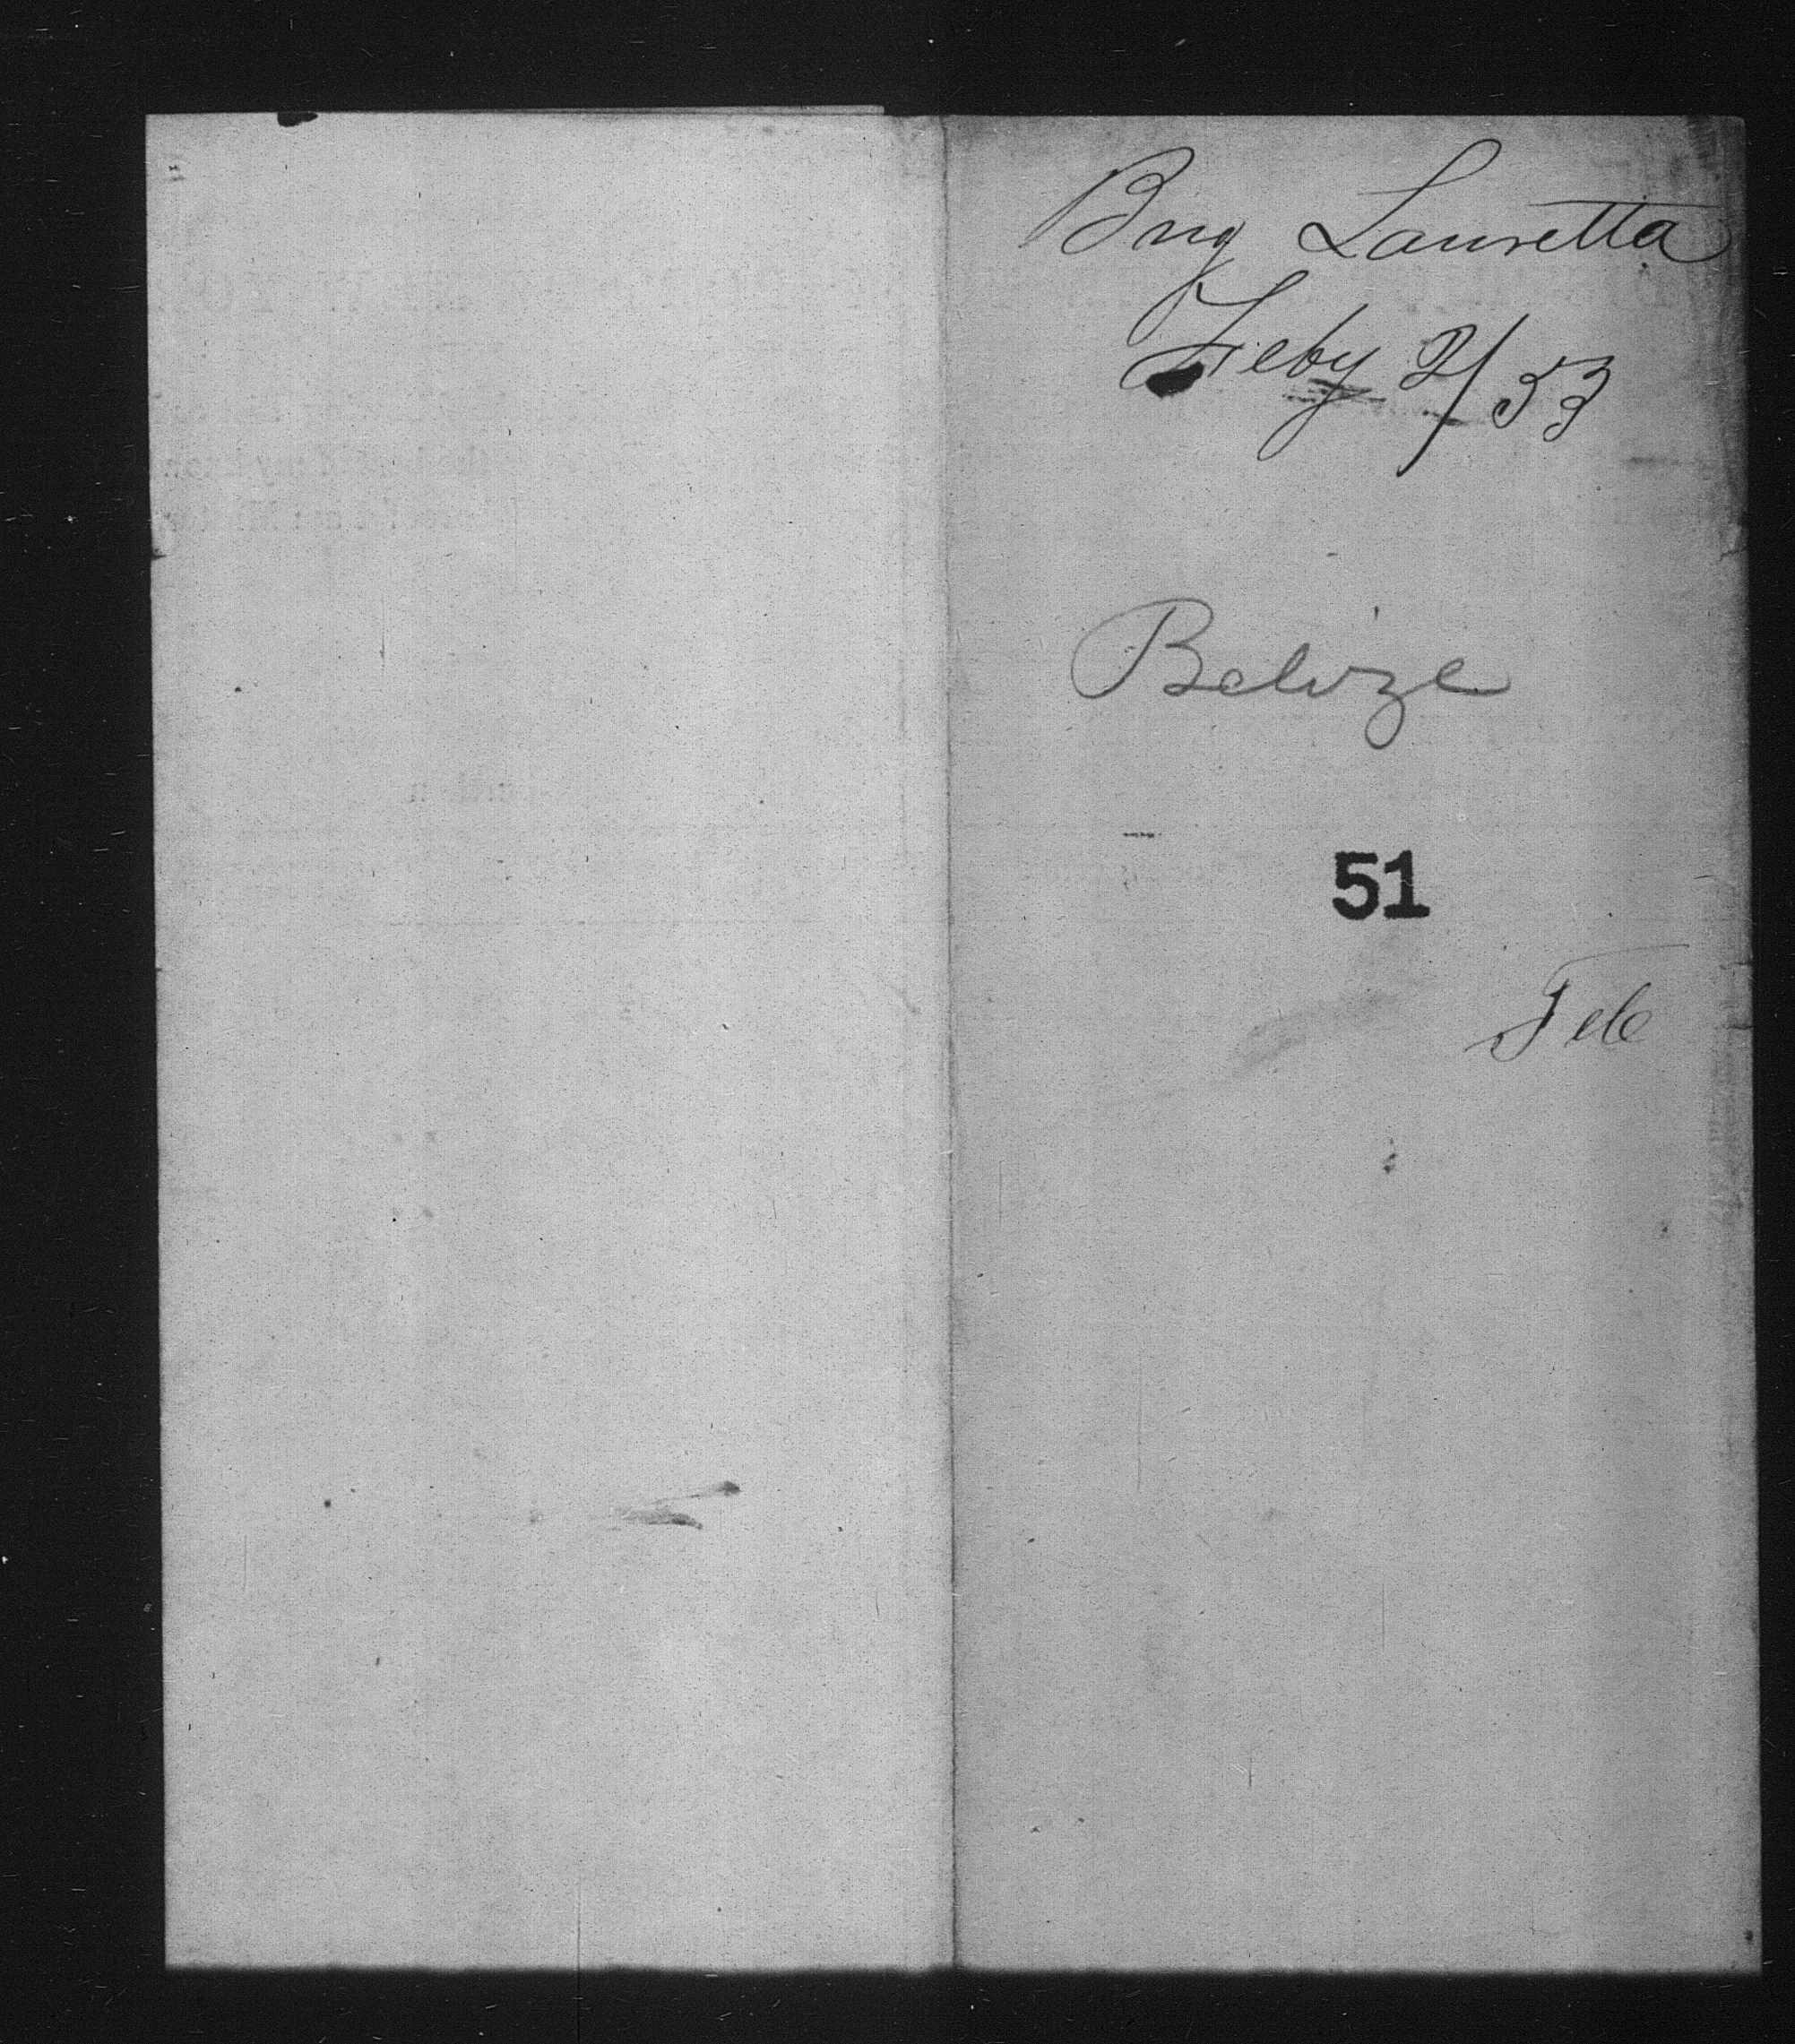 Brig Lauretta
Feby 2/53
Belize
51
Feb